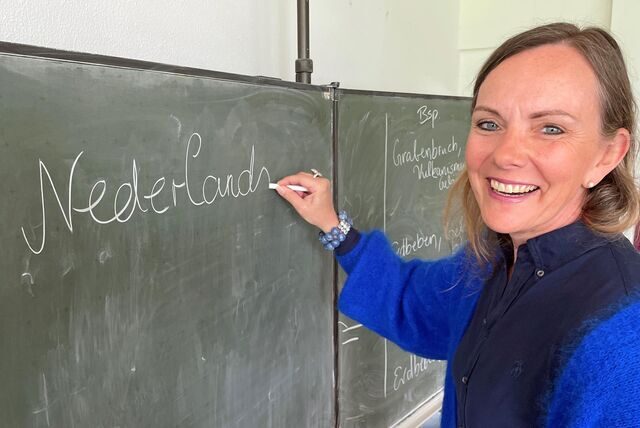 Nederlands
Bsp
Grabenbruch,
Vulkanismus
Erdbeben,